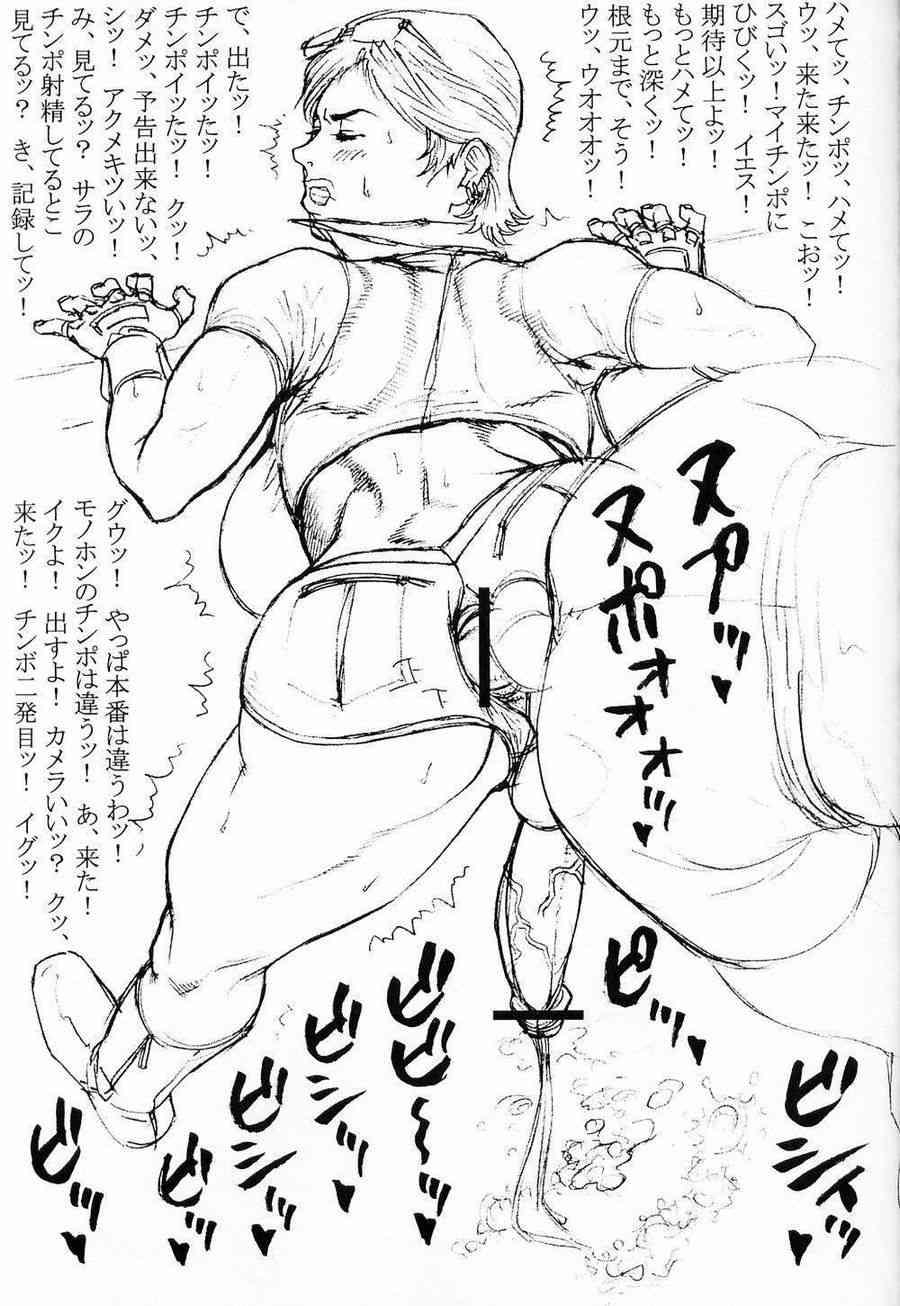 ハメてッ、チンポッ、ハメてッ！
ウッ、来た来たッ！ こおッ！
スゴいッ！マイチンポに
ひびくッ！ イエス！
期待以上よッ！
もっとハメてッ！
もっと深くッ！
根元まで、そう！
ウッ、ウオオオッ！
で、出たッ！
チンポイッたッ！
チンポイッたッ！ クッ！
ダメッ、予告出来ないッ、
シッ！ アクメキツいッ！
み、見てるッ？ サラの
チンポ射精してるとこ
見てるッ？ き、記録してッ！
ヌアッ♥
ヌポォォォッ♥
グウッ！ やっぱ本番は違うわッ！
モノホンのチンポは違うッ！ あ、来た！
イクよ！ 出すよ！ カメラいいッ？ クッ、
来たッ！ チンボ二発目ッ！ イグッ！
ピッ♥
ビシィッ♥
ビビ～ッ♥
ビシッ♥
ビシッ♥
ビッ♥
ビッ♥